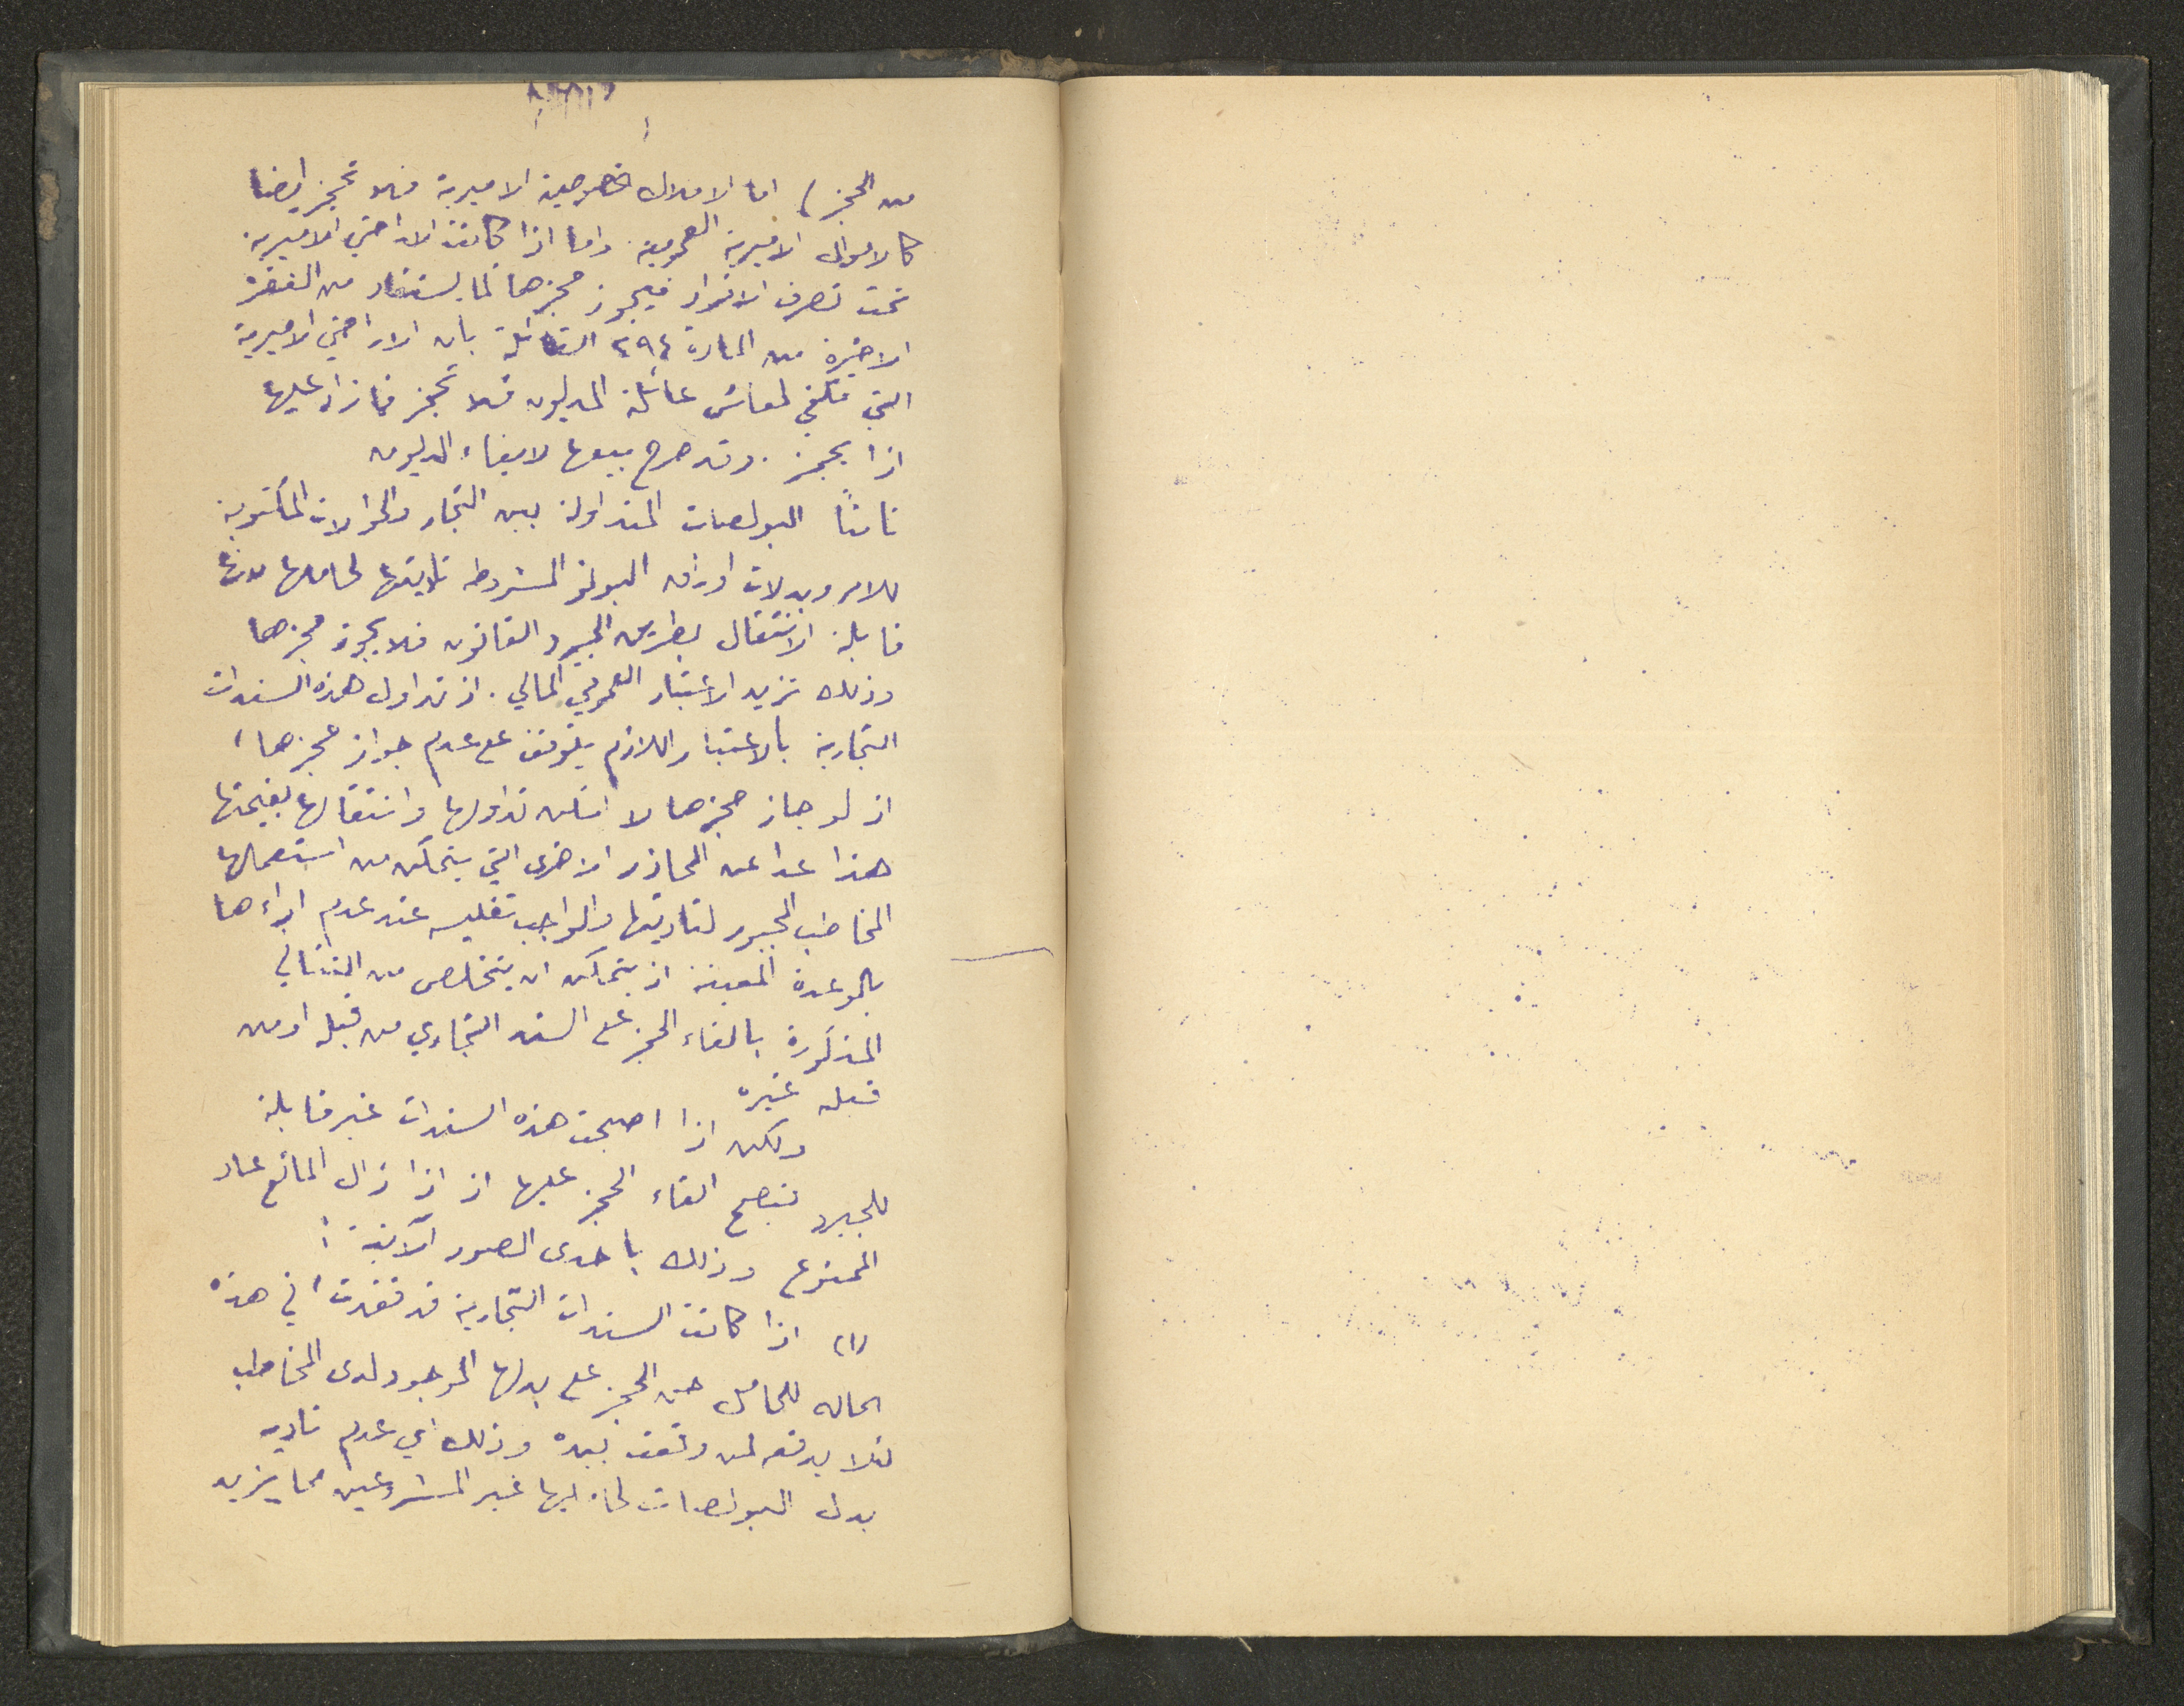 من الحجز) اما الاملاك الخصوصية الاميرية فلا تحجز ايضا
كالاموال الاميرية العمومية. واما اذا كانت الاراضي الاميرية
تحت تصرف الافراد فيجوز حجزها لما يستفاد من الفقرة
الاخيرة من المادة ٢٩٤ القائلة بان الاراضي الاميرية
التي تكفي لمعاش عائلة المديون فلا تحجز فما زاد عليها
اذا يحجز. وقد صرح ببيعها لايفاء الديون
ثامناً البولصات المتداولة بين التجار والحوالات المكتوبة
للامر وبدلات اوراق البوليز المشروط تأديتها لحاملها لانها
قابلة الانتقال بطريق الجيرو القانون فلا يجوز حجزها
وذلك تزيد الاعتبار العمومي المالي. اذ تداول هذه السندات
التجارية بالاعتبار اللازم يتوقف على عدم جواز حجزها،
اذ لو جاز حجزها لا امكن تداولها وانتقالها بقيمتها
هذا عدا عن المحاذر الاخرى التي يتمكن من استعمالها
المخاطب المجبور لتأديتها والواجب تفليسه عند عدم اداءها
بالموعدة المعينة اذ يتمكن ان يتخلص من النتائج
المذكورة بالقاء الحجز على السند التجاري من قبله او من
قبل غيره
ولكن اذا اصبحت هذه السندات غير قابلة
للجيرو فيصح القاء الحجز عليها اذ اذا زال المانع عاد
الممنوع وذلك باحدى الصور الآتية :
(١) اذا كانت السندات التجارية قد فقدت، في هذه
الحاله للحامل حق الحجز على بدلها الموجود لدى المخاطب
لئلا يدفع لمن وقعت بيده وذلك اي عدم تاديه
بدل البولصات لحامليها غير المشروعين مما يزيد